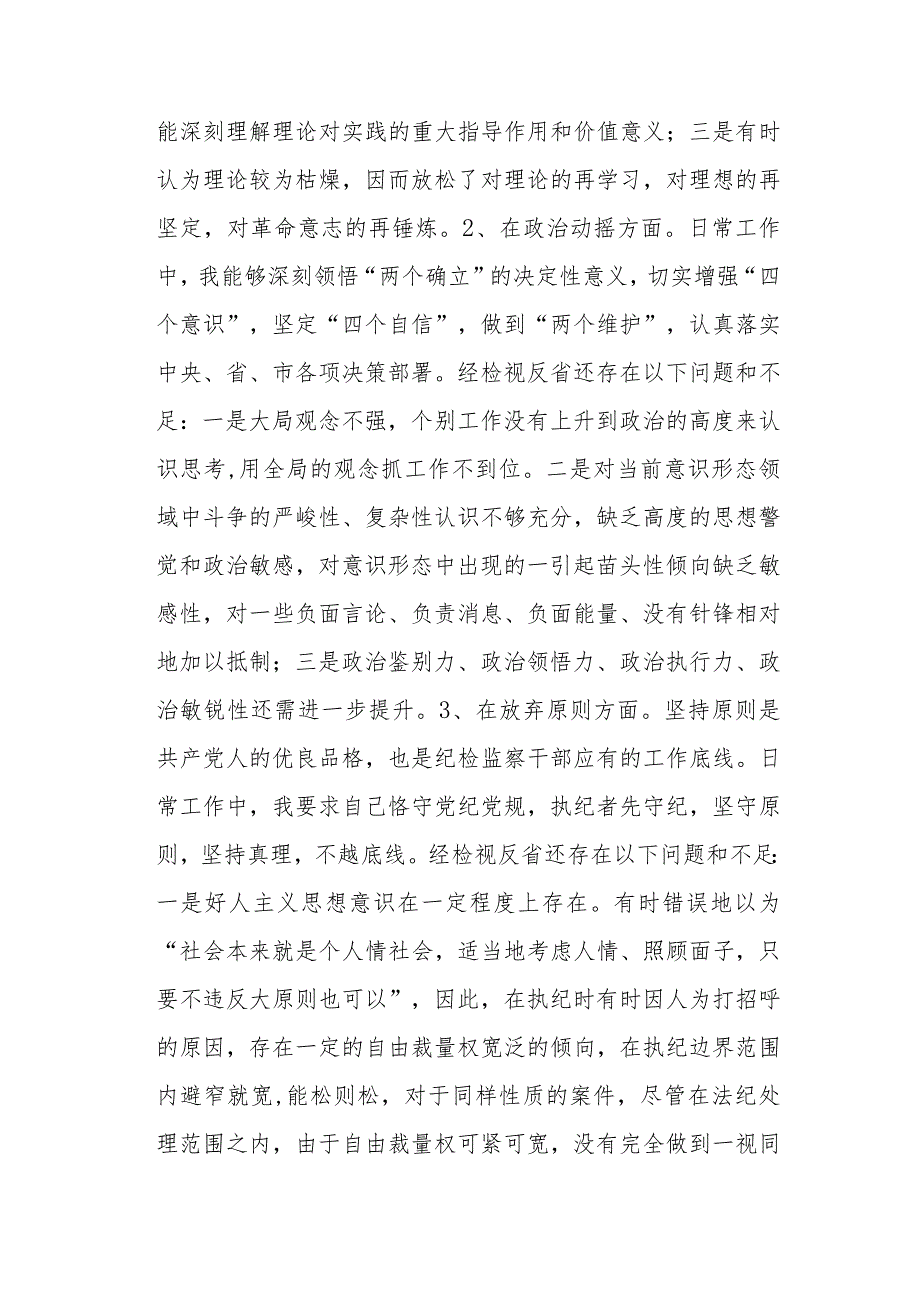 能深刻理解理论对实践的重大指导作用和价值意义；三是有时
认为理论较为枯燥，因而放松了对理论的再学习，对理想的再
坚定，对革命意志的再锤炼。2、在政治动摇方面。日常工作
中，我能够深刻领悟“两个确立”的决定性意义，切实增强“四
个意识”，坚定“四个自信”，做到“两个维护”，认真落实
中央、省、市各项决策部署。经检视反省还存在以下问题和不
足：一是大局观念不强，个别工作没有上升到政治的高度来认
识思考,用全局的观念抓工作不到位。二是对当前意识形态领
域中斗争的严峻性、复杂性认识不够充分，缺乏高度的思想警
觉和政治敏感，对意识形态中出现的一引起苗头性倾向缺乏敏
感性，对一些负面言论、负责消息、负面能量、没有针锋相对
地加以抵制；三是政治鉴别力、政治领悟力、政治执行力、政
治敏锐性还需进一步提升。3、在放弃原则方面。坚持原则是
共产党人的优良品格，也是纪检监察干部应有的工作底线。日
常工作中，我要求自己恪守党纪党规，执纪者先守纪，坚守原
则，坚持真理，不越底线。经检视反省还存在以下问题和不足：
一是好人主义思想意识在一定程度上存在。有时错误地以为
“社会本来就是个人情社会，适当地考虑人情、照顾面子，只
要不违反大原则也可以”，因此，在执纪时有时因人为打招呼
的原因，存在一定的自由裁量权宽泛的倾向，在执纪边界范围
内避窄就宽,能松则松，对于同样性质的案件，尽管在法纪处
理范围之内，由于自由裁量权可紧可宽，没有完全做到一视同